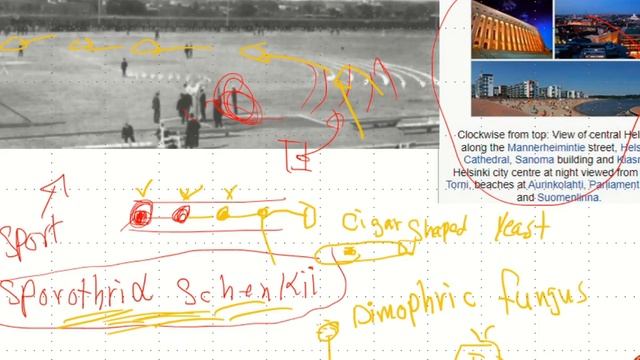 Clockwise from top: View of central Hel
along the Mannerheimintie street, Hels
Cathedral, Sanoma building and Kias
Helsinki city centre at night viewed from
Torni, beaches at Aurinkolahti, Parliament
and Suomenlinna.
Sport
Cigar Shaped Yeast
Sporothrid Schenkii
Dimophric fungus